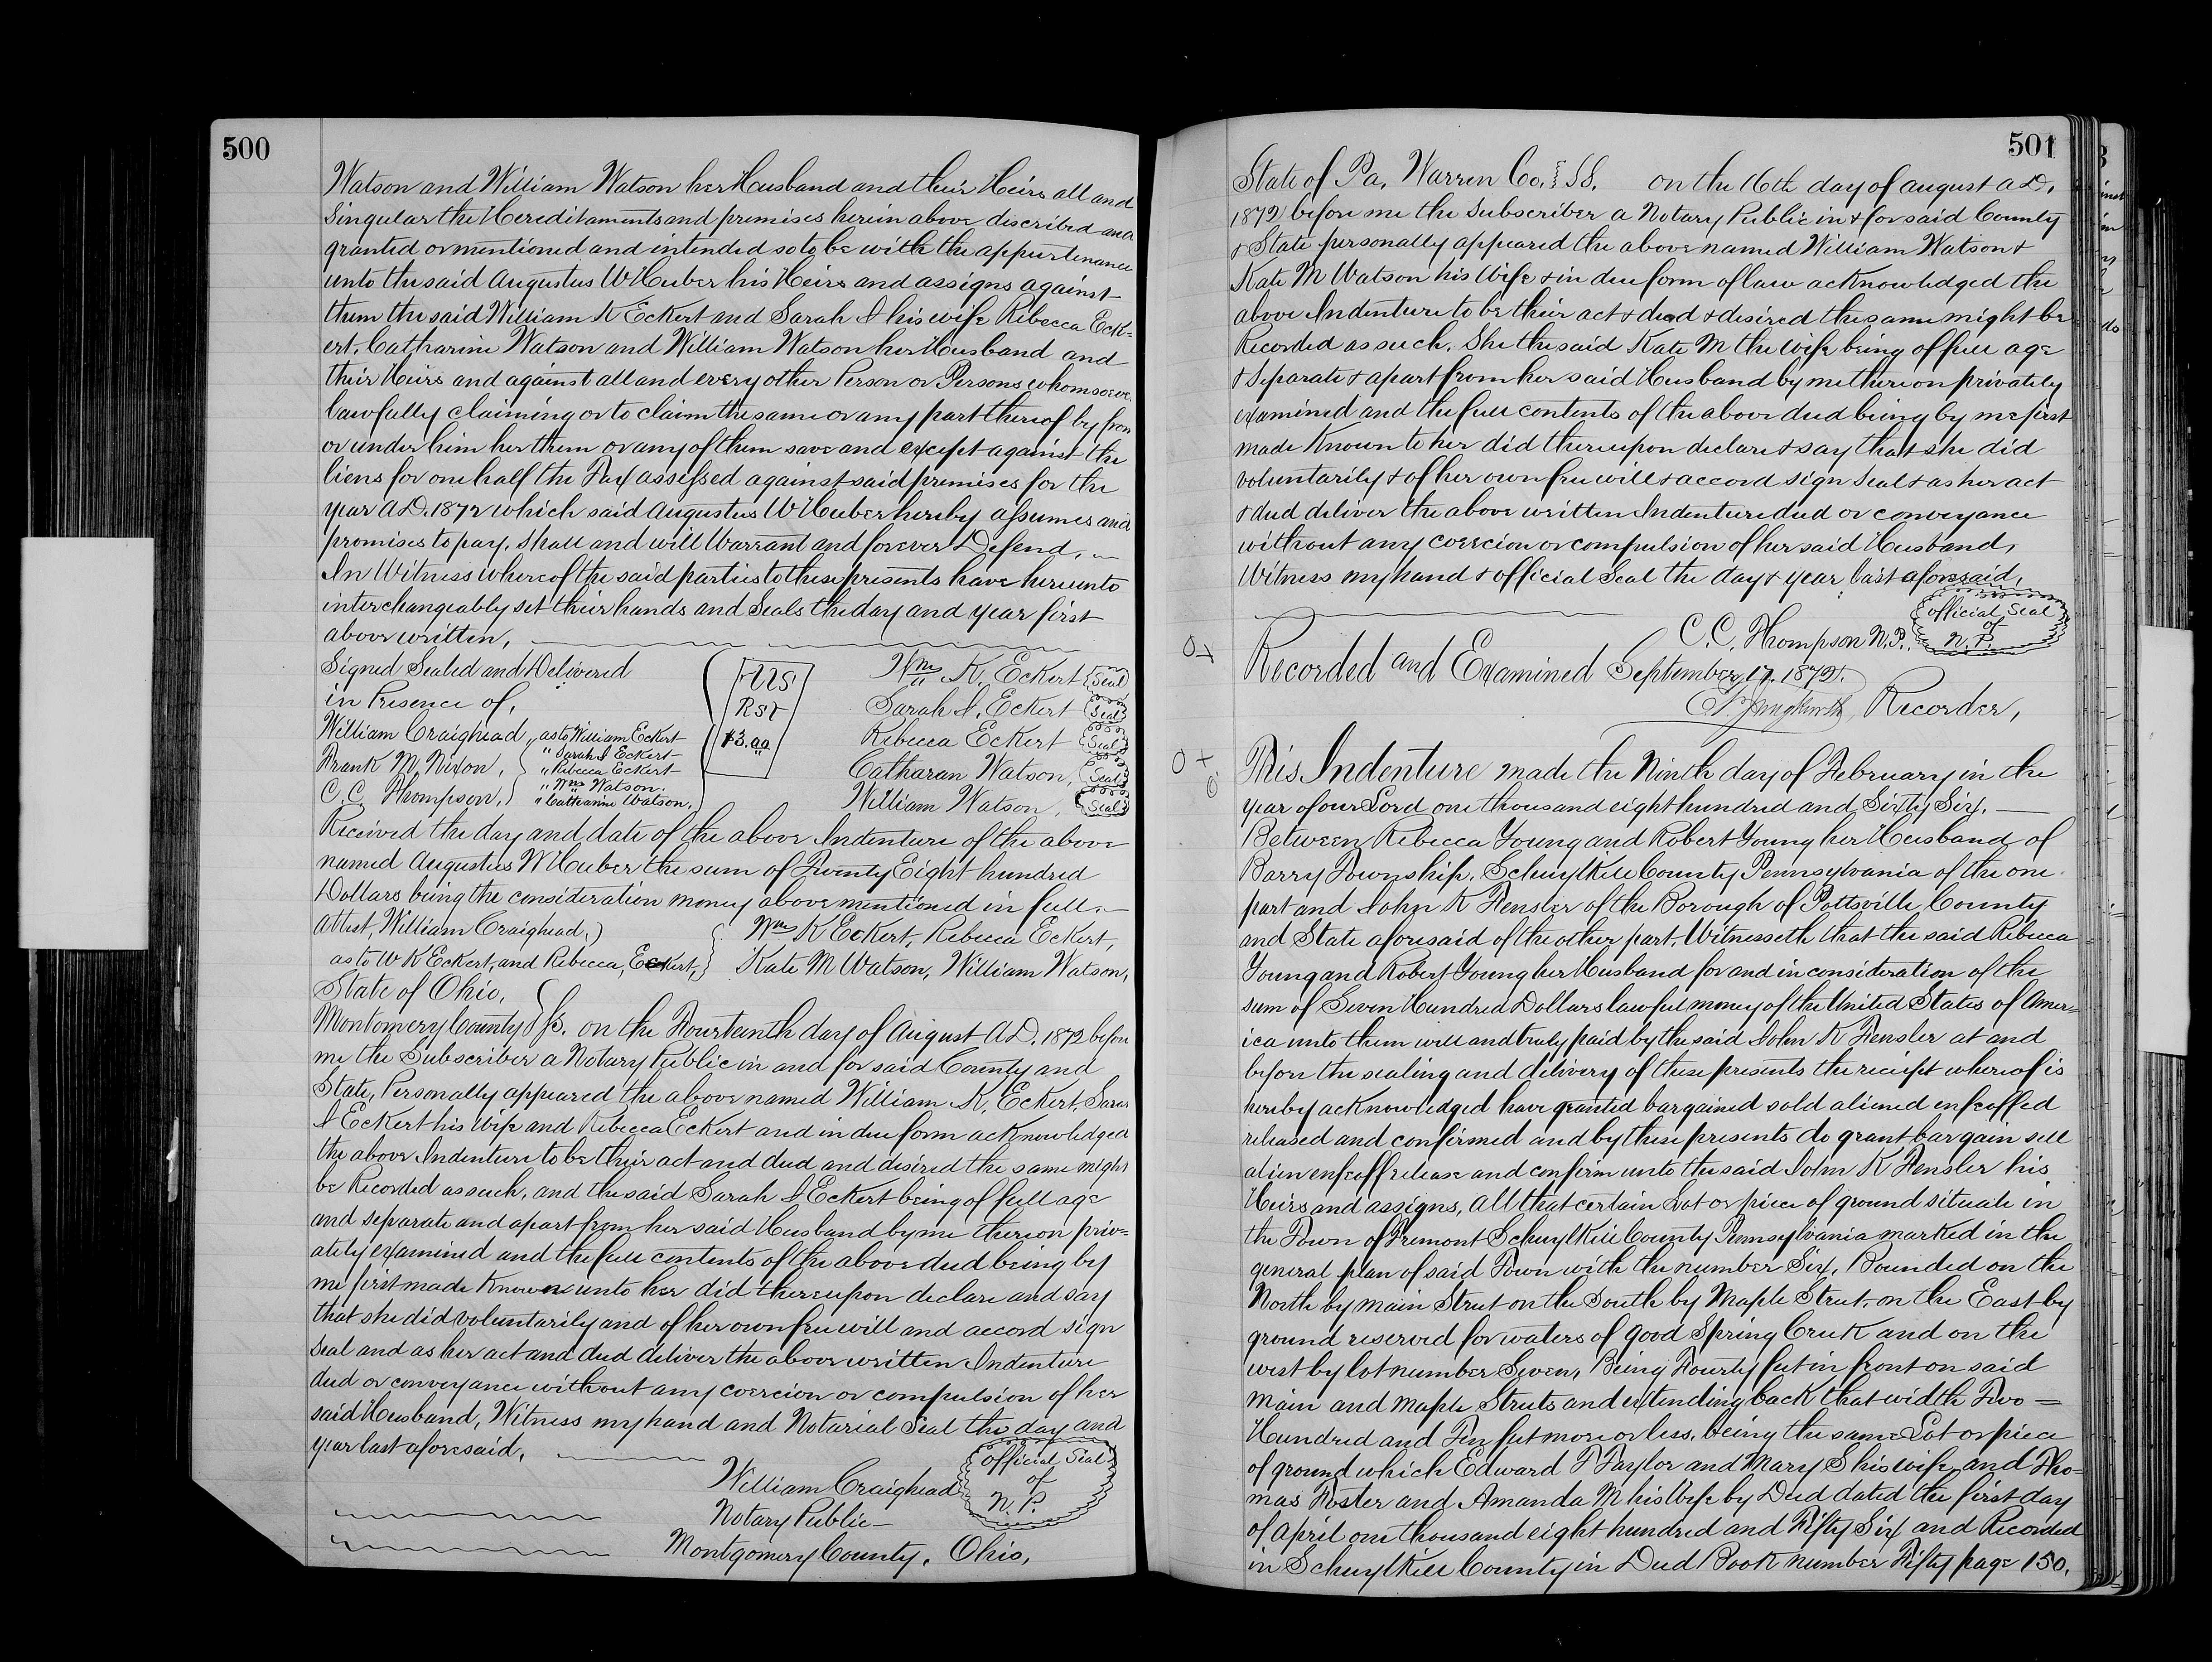 500
Watson and William Watson her Husband and their Heirs all and
Singular the Hereditaments and premises herein above discribed and
granted or mentioned and intended so to be with the appurtenance
unto the said Augustus W Huber his Heirs and assigns against
them the said William K Eckert and Sarah I his wife Rebecca Eck=
ert, Catharine Watson and William Watson her Husband and
their Heirs and against all and every other Person or Persons whomsoeve
lawfully claiming or to claim the same or any part thereof by from
or under him her them or any of them save and except against the
liens for one half the Tax assessed against said premises for the
year A.D. 1872 which said Augustus W Huber hereby assumes and
promises to pay, Shall and will Warrant and forever Defend,
In Witness whereof the said parties to these presents have hereunto
interchangeably set their hands and Seals the day and year first
above written,
Signed Sealed and Delivered
in Presence of,
William Craighead, as to William Eckert
" Sarah I Eckert
Frank M. Nixon, " Rebecca Eckert
" Wm Watson.
C. C. Thompson, " Catharine Watson,
U S
R S T
$3.00
Wm K. Eckert Seal
Sarah I. Eckert Seal
Rebecca Eckert Seal
Catharan Watson, Seal
William Watson, Seal
Received the day and date of the above Indenture of the above
named Augustus W Huber the sum of Twenty Eight hundred
Dollars being the consideration money above mentioned in full.
Attest, William Craighead, Wm K Eckert, Rebecca Eckert,
as to W K Eckert, and Rebecca, Eckert, Kate M Watson, William Watson,
State of Ohio,
Montomery County SS. on the Fourteenth day of August A.D. 1872 before
me the Subscriber a Notary Public in and for said County and
State, Personally appeared the above named William K. Eckert, Sara
I Eckert his Wife and Rebecca Eckert and in due form acknowledged
the above Indenture to be their act and deed and desired the same might
be Recorded as such, and the said Sarah I Eckert being of full age
and separate and apart from her said Husband by me thereon priv=
ately examined and the full contents of the above deed being by
me first made known unto her did thereupon declare and say
that she did voluntarily and of her own free will and accord sign
seal and as her act and deed deliver the above written Indenture
deed or conveyance without any coercion or compulsion of her
said Husband, Witness my hand and Notarial Seal the day and
year last aforesaid,
William Craighead
Notary Public
Montgomery County, Ohio,
Official Seal
of
N. P.
501
State of Pa, Warren Co. SS. on the 16th day of august A.D.
1872 before me the Subscriber a Notary Public in & for said County
& State personally appeared the above named William Watson &
Kate M Watson his Wife & in due form of law acknowledged the
above Indenture to be their act & deed & desired the same might be
Recorded as such, She the said Kate M the Wife being of full age
& Separate & apart from her said Husband by me thereon privately
examined and the full contents of the above deed being by me first
made Known to her did thereupon declare & say that she did
voluntarily & of her own free will & accord sign Seal & as her act
& deed deliver the above written Indenture deed or conveyance
without any coercion or compulsion of her said Husband,
Witness my hand & official Seal the day & year last aforesaid,
C. C. Thompson N.P.
Official Seal
of
N. P.
Recorded and Examined September 17, 1872.
Recorder,
This Indenture made the Ninth day of February in the
year of our Lord one thousand eight hundred and Sixty Six,
Between Rebecca Young and Robert Young her Husband of
Barry Township, Schuylkill County Pennsylvania of the one
part and John K Fensler of the Borough of Pottsville County
and State aforesaid of the other part, Witnesseth that the said Rebecca
Young and Robert Young her Husband for and in consideration of the
sum of Seven Hundred Dollars lawful money of the United States of Amer=
ica unto them well and truly paid by the said John K Fensler at and
before the sealing and delivery of these presents the receipt whereof is
hereby acknowledged have granted bargained sold aliened enfeoffed
released and confirmed and by these presents do grant bargain sell
alien enfeoff release and confirm unto the said John K Fensler his
Heirs and assigns, All that certain Lot or piece of ground situate in
the Town of Tremont Schuylkill County Pennsylvania marked in the
general plan of said Town with the number Six, Bounded on the
North by main Street on the South by Maple Street, on the East by
ground reserved for waters of good Spring Creek and on the
west by lot number Seven, Being Fourty feet in front on said
main and maple Streets and extending back that width Two =
Hundred and Ten feet more or less, being the same Lot or piece
of ground which Edward T Taylor and Mary S his wife and Tho=
mas Foster and Amanda M his Wife by Deed dated the first day
of April one thousand eight hundred and Fifty Six and Recorded
in Schuylkill County in Deed Book number Fifty page 150,